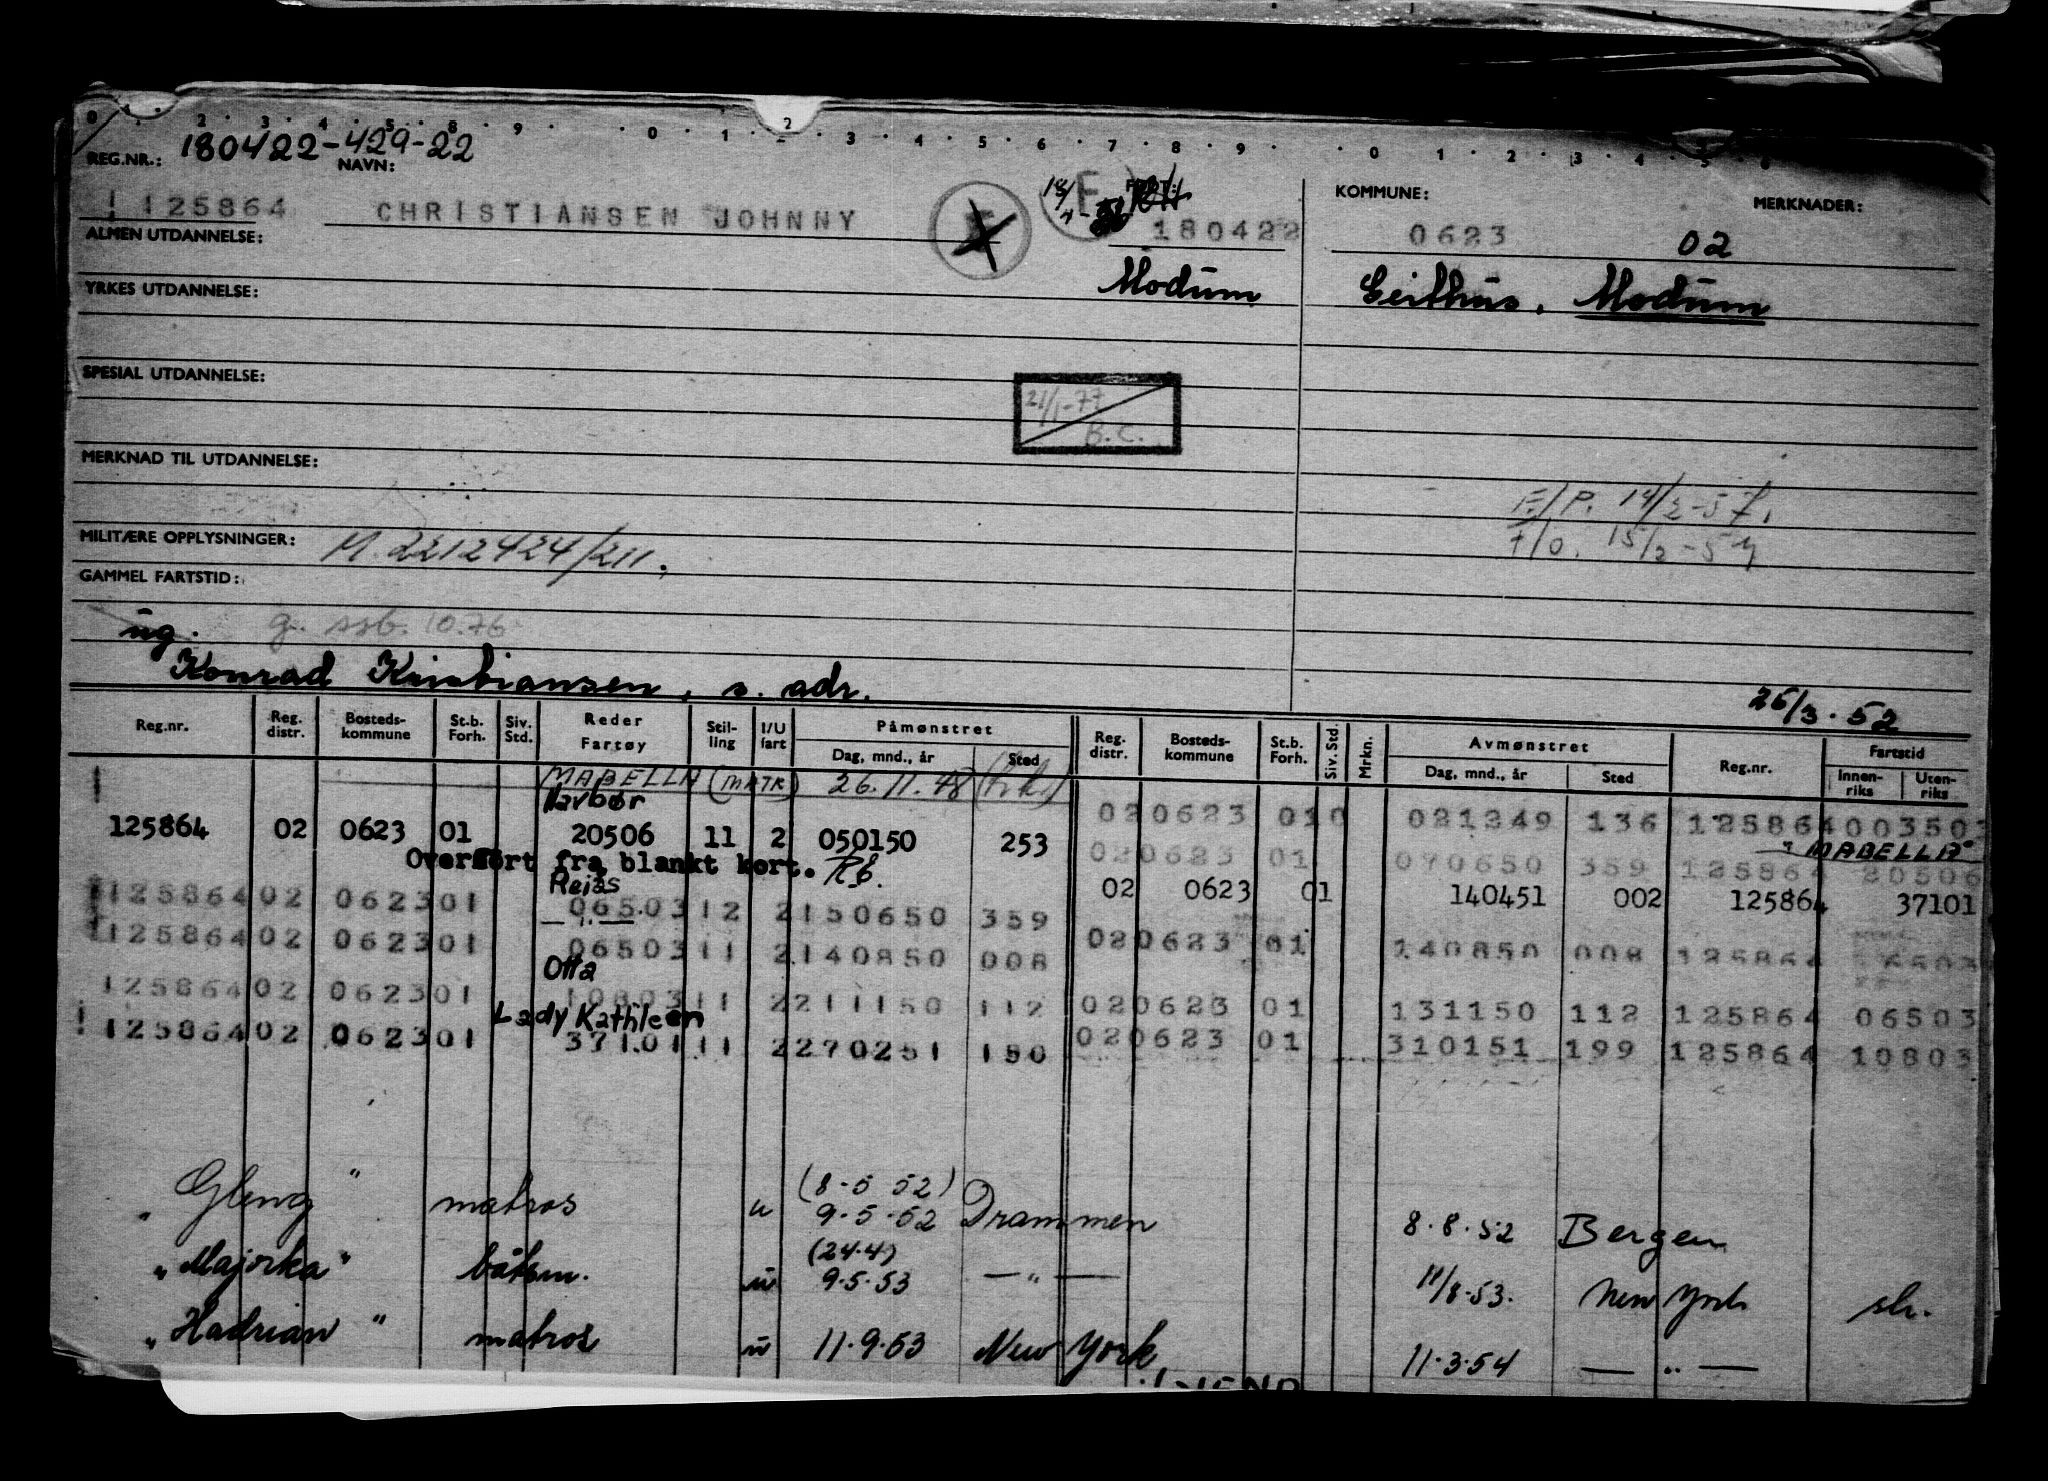 0 . 1 . 2 . 3 . 4 . 5 . 8 . 9 . . 0 . 1 . 2 . 3 . 4 . 5 . 6 . 7 . 8 . 9 . . 0 . 1 . 2 . 3 . 4 . 5 . 6
REG.NR.: 180422-429-22 NAVN: FØDT: KOMMUNE: MERKNADER:
125864 CHRISTIANSEN JOHNNY 180422 0623 02
ALMEN UTDANNELSE:
Modum Geithus, Modum
YRKES UTDANNELSE:
SPESIAL UTDANNELSE:
21/1-77
B.C.
MERKNAD TIL UTDANNELSE:
F/P. 14/2-57.
F/O. 15/2-57
MILITÆRE OPPLYSNINGER: M. 2212424/211.
GAMMEL FARTSTID:
ug. g. ssb. 10.76
Konrad Kristiansen, s. adr.
25/3. 52
Reg.nr. Reg. distr. Bosteds-kommune St.b. Forh. Siv. Std. Reder Fartøy Stil-ling I/U fart Påmønstret Dag, mnd., år Sted Reg. distr. Bosteds-kommune St.b. Forh. Siv. Std. Mrkn. Avmønstret Dag, mnd., år Sted Reg.nr. Fartstid Innen-riks Uten-riks
MABELLA (MATR) 26.11.48
Havbør 020623 010 021249 136 125864 003503
125864 02 0623 01 20506 11 2 050150 253 "MABELLA"
Overført fra blankt kort. 020623 01 070650 359 125864 20506
Reias 02 0623 01 140451 002 125864 37101
125864 02 0623 01 06503 12 2 150650 359
— " —
125864 02 0623 01 06503 11 2 140850 008 020623 01 140850 008 125864 06503
Otta
125864 02 0623 01 10803 11 2 211150 112 020623 01 131150 112 125864 06503
Lady Kathleen
125864 02 0623 01 37101 11 2 270251 150 020623 01 310151 199 125864 10803
"Gleng" matros u (8-5 52) 9-5-52 Drammen 8.8.52 Bergen
"Majorka" båtsm. u (24.4) 9.5.53 — " — 11/8.53. New York slr.
"Hadrian" matros u 11.9.53 New York 11.3.54 — " —